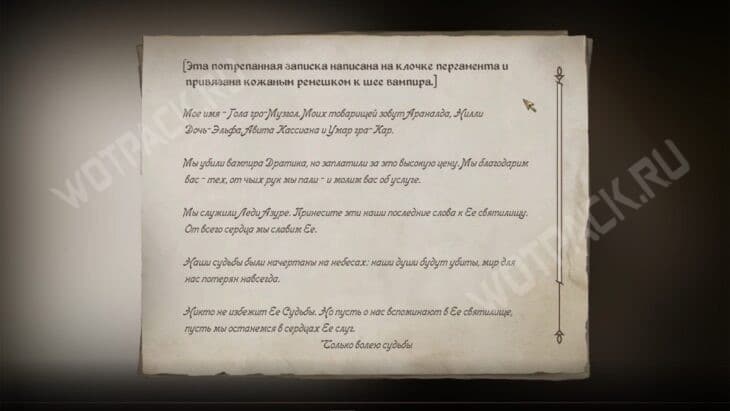 [Эта потрепанная записка написана на клочке пергамента и
привязана кожаным ремешком к шее вампира.]
Мое имя - Гола гро-Музгол. Моих товарищей зовут Араналда, Нилли
Дочь-Эльфа, Авита Кассиана и Умар гра-Кар.
Мы убили вампира Дратика, но заплатили за это высокую цену. Мы благодарим
вас - тех, от чьих рук мы пали - и молим вас об услуге.
Мы служили Леди Азуре. Принесите эти наши последние слова к Ее святилищу.
От всего сердца мы славим Ее.
Наши судьбы были начертаны на небесах: наши души будут убиты, мир для
нас потерян навсегда.
Никто не избежит Ее Судьбы. Но пусть о нас вспоминают в Ее святилище,
пусть мы останемся в сердцах Ее слуг.
Только волею судьбы
WOTPACK.RU
WOTPACK.RU